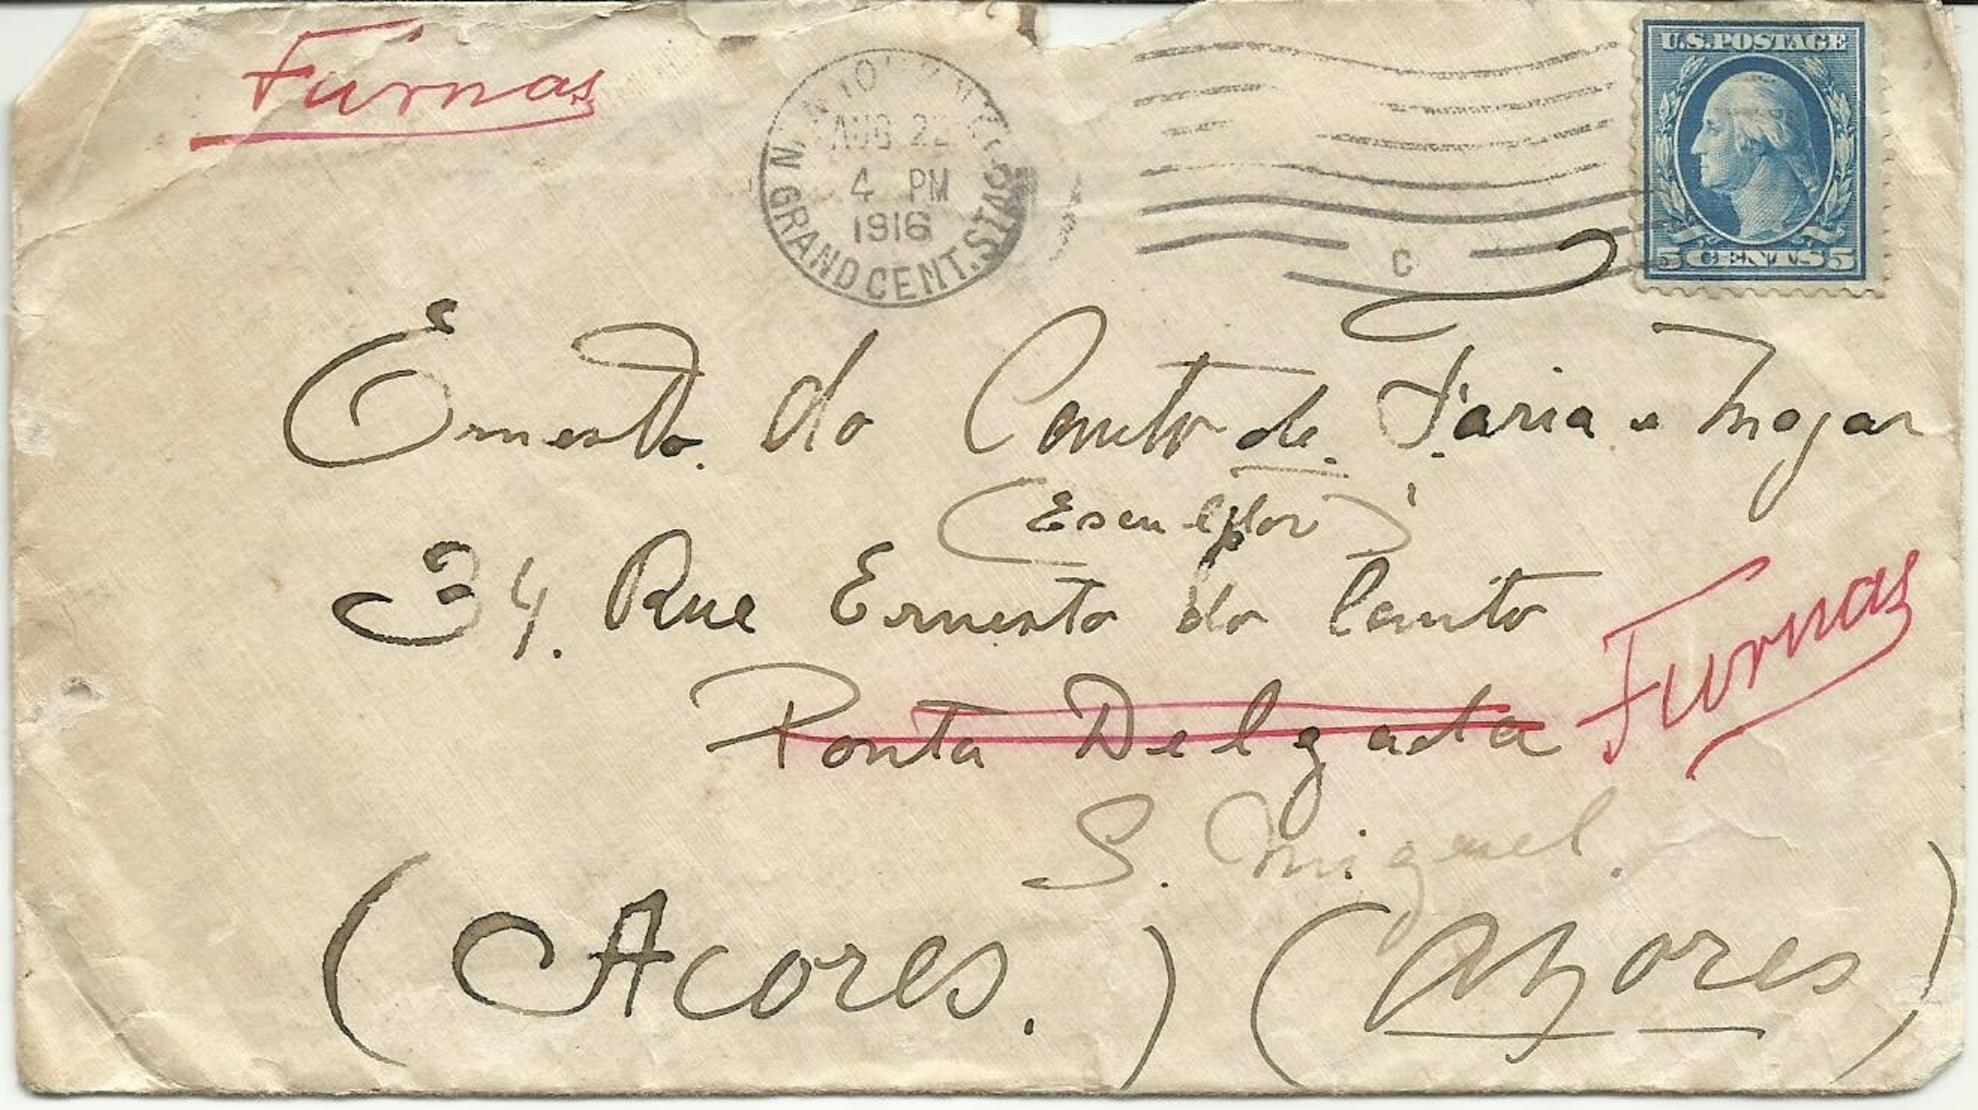 Furnas
NEW YORK, N.Y.
AUG 22
4 PM
1916
GRAND CENT. STA.
C
U.S.POSTAGE
5 CENTS 5
Ernesto do Canto de Faria e Maja
(Esculptor)
34. Rue Ernesto do Canto
Ponta Delgada Furnas
S. Miguel.
(Acores.) (Azores)